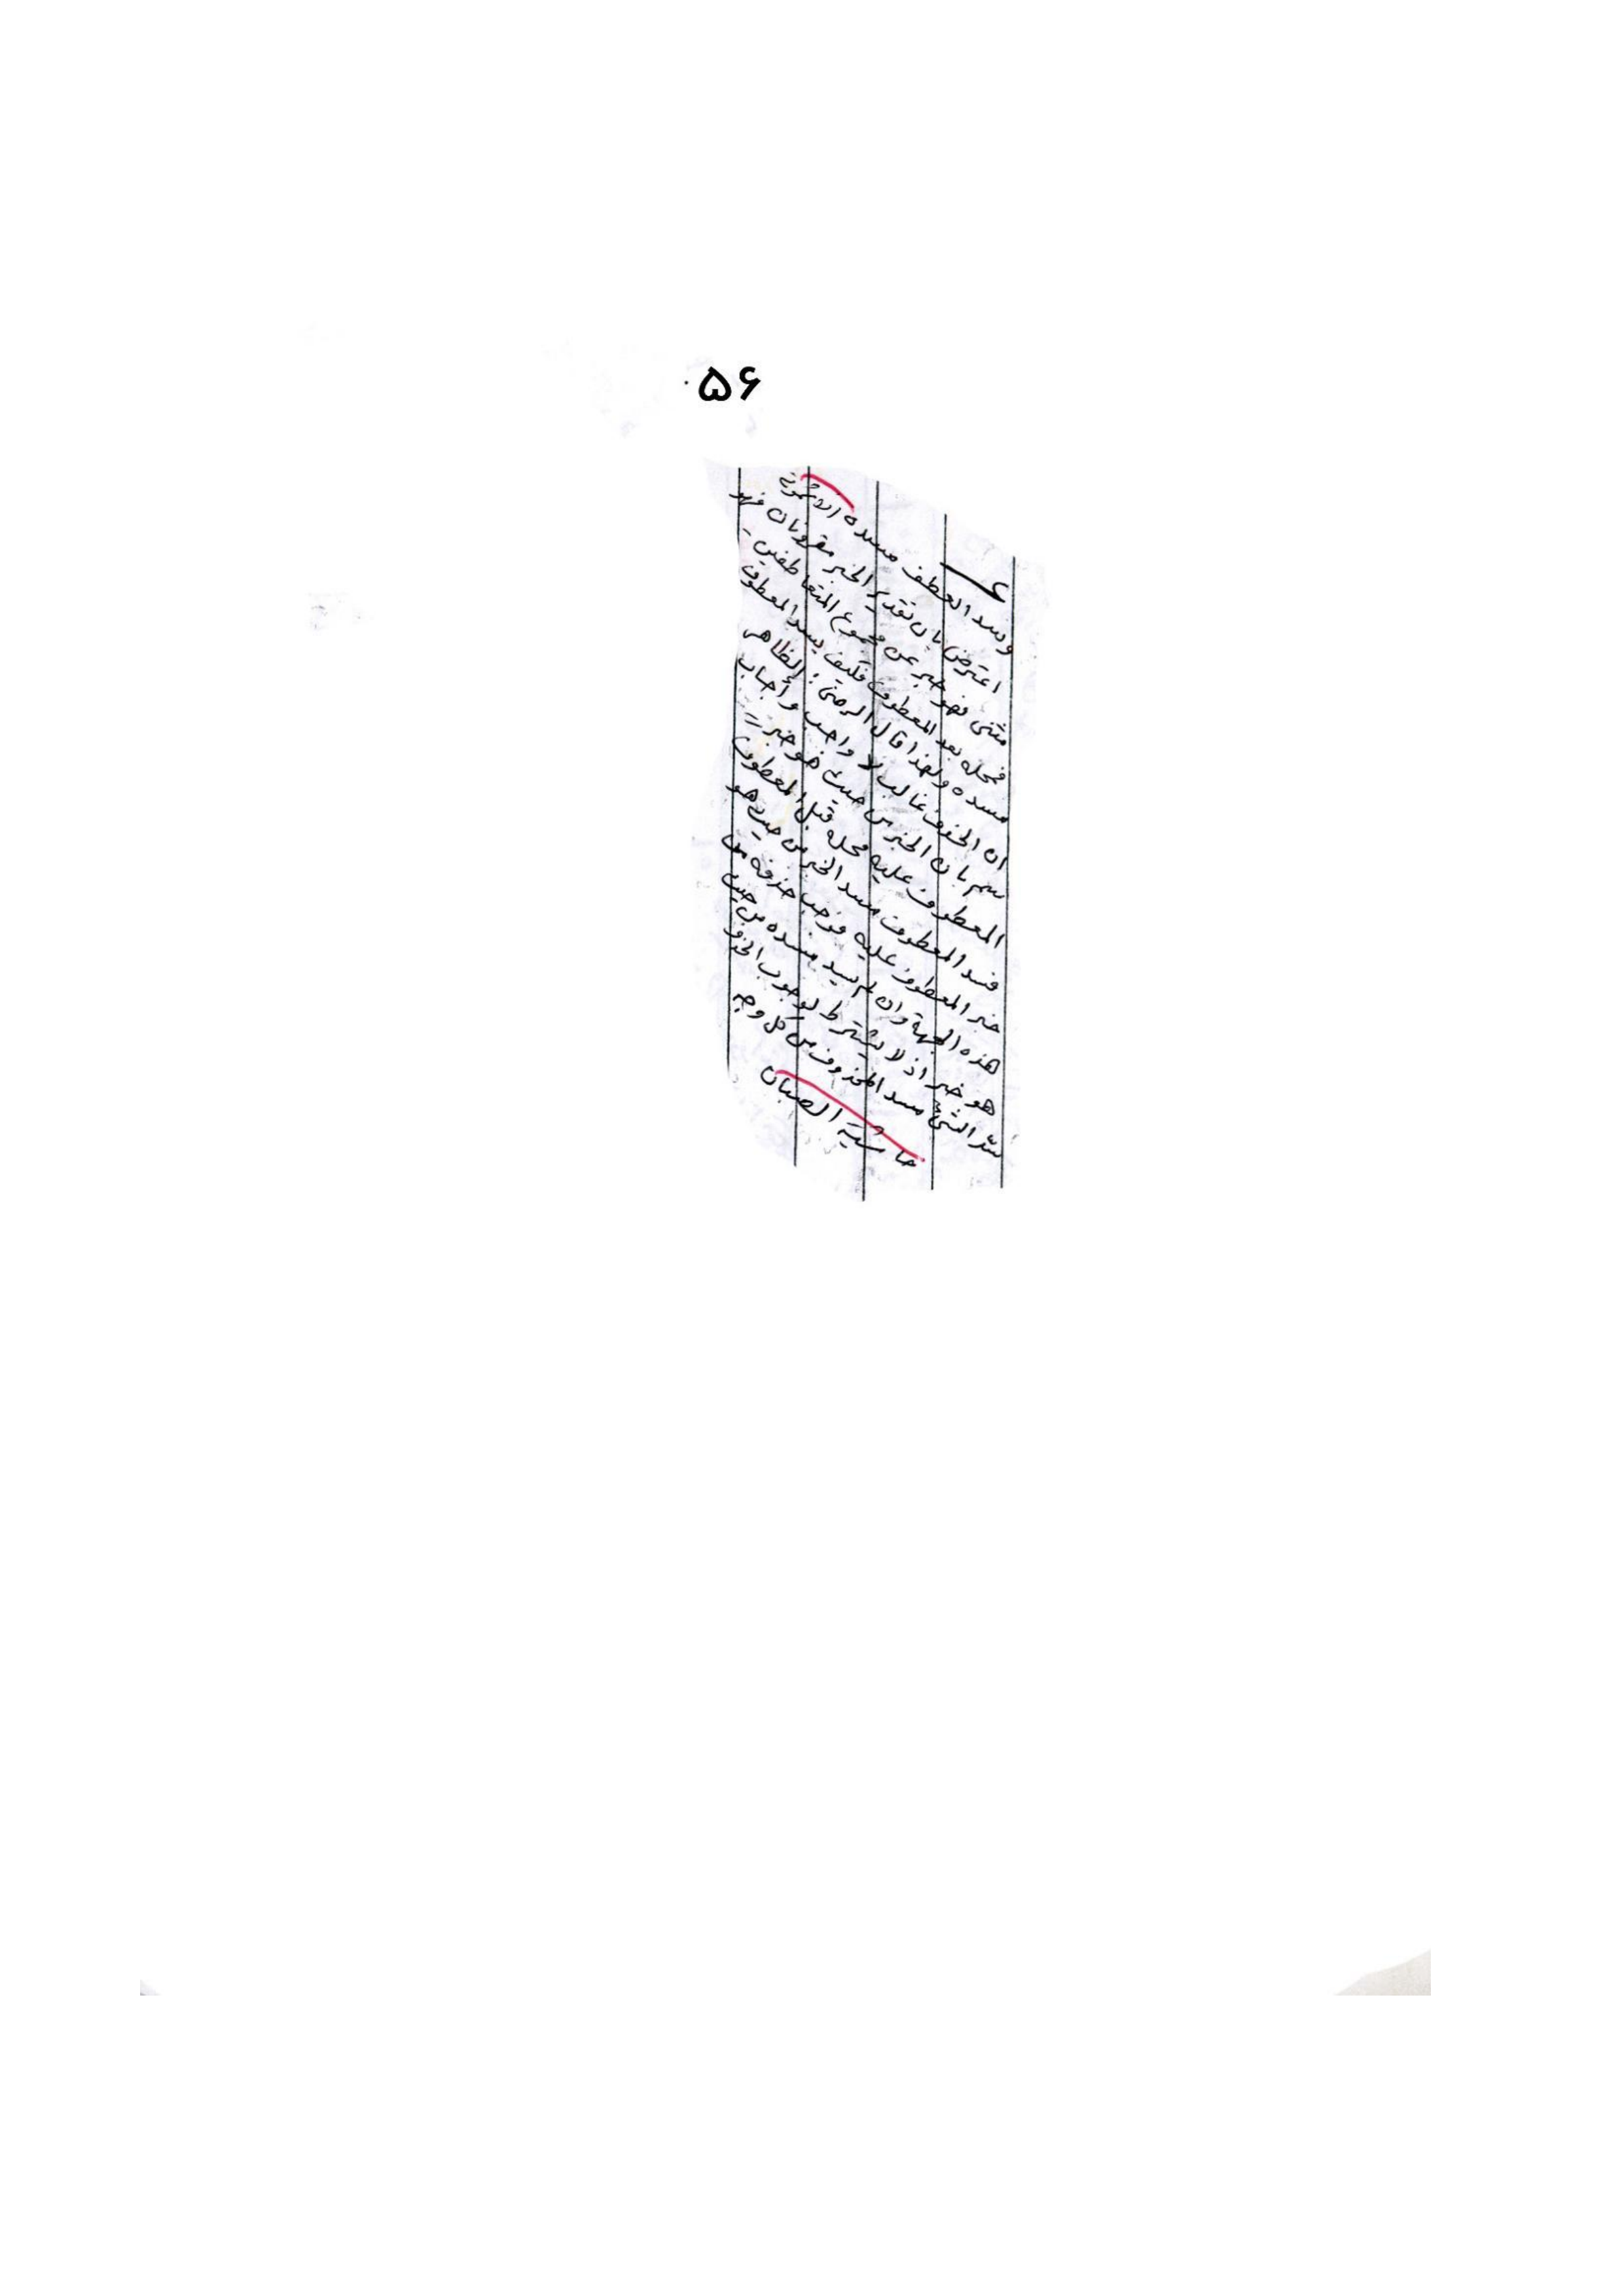 ۵۶
۶
وسد العطف مسده الاشمونی
اعترض بان تقدير الخبر مقرونان فهو
مثنى فهو خبر عن مجموع المتعاطفين
فمحله بعد المعطوف فكيف يسد المعطوف
مسده ولهذا قال الرضي: الظاهر
ان الحذف غالب لا واجب وأجاب
سم بان الخبر من حيث هو خبر
المعطوف عليه محله قبل المعطوف
فسد المعطوف مسد الخبر من حيث هو
خبر المعطوف عليه فوجب حذفه من
هذه الجهة وان لم يسد مسده من حيث
هو خبر اذ لا يشترط لوجوب الحذف
سدّ الشئ مسد المحذوف من كل وجه
حاشية الصبان